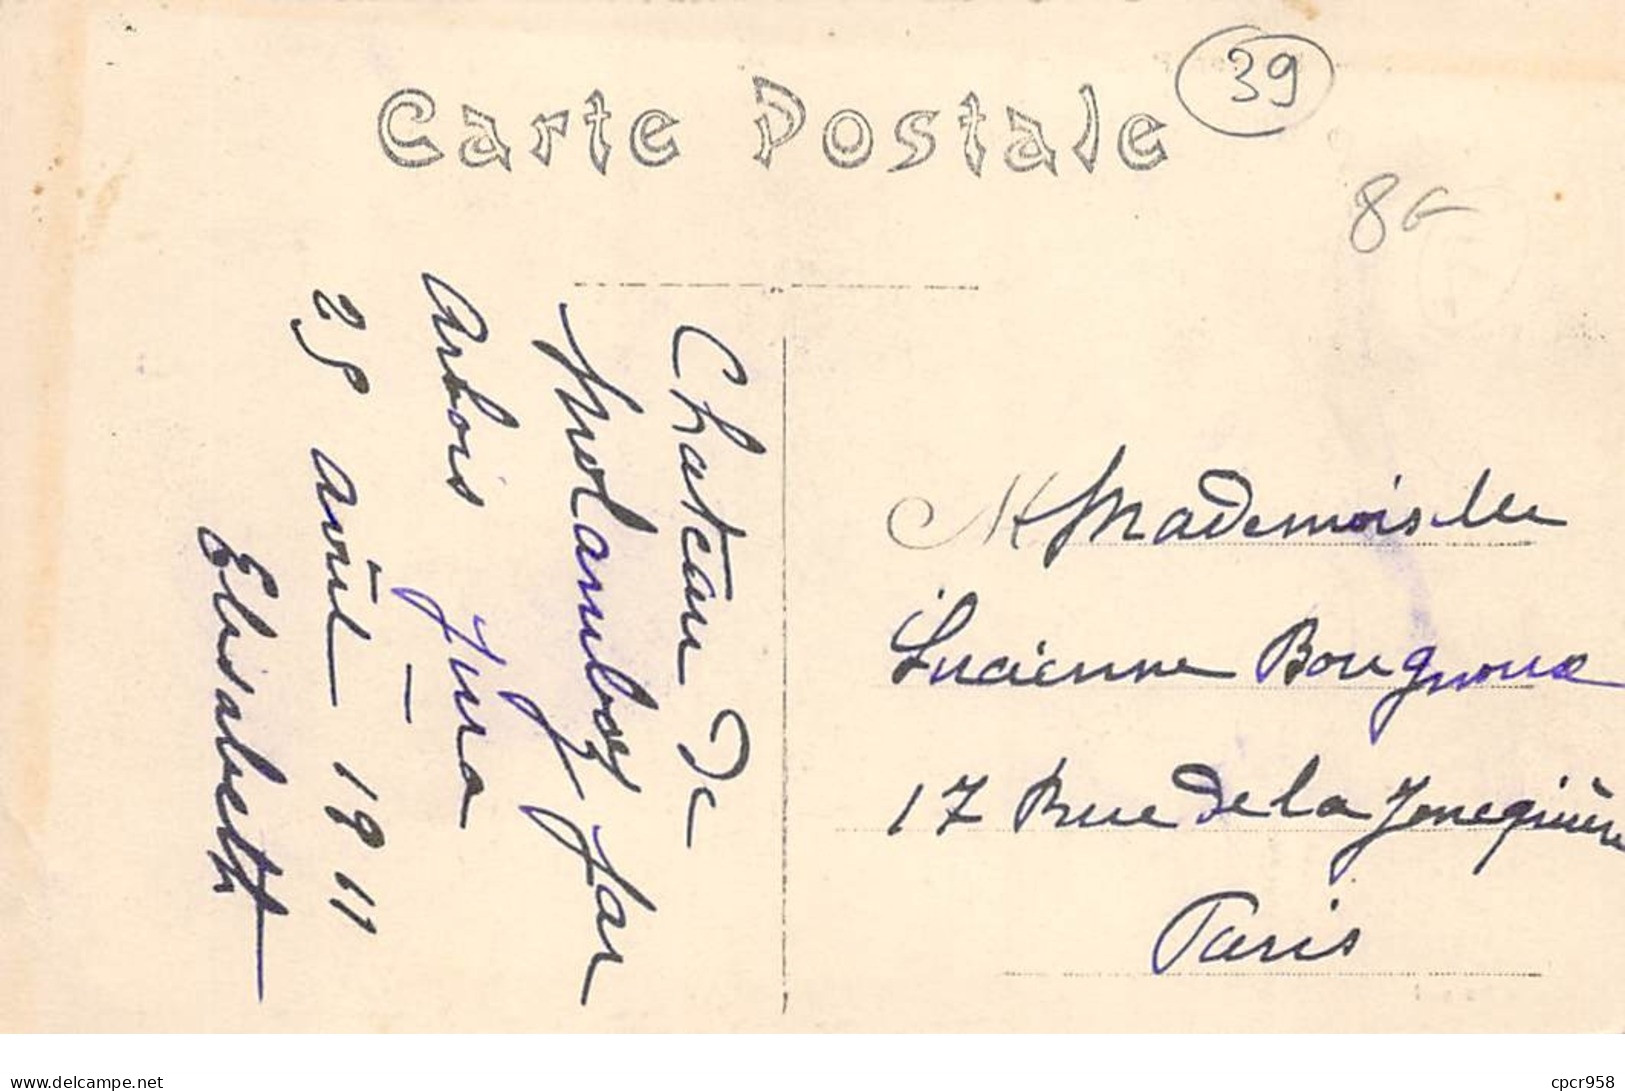 Carte Postale
39
8€
Chateau de
Molamboz par
Arbois Jura
25 avril 1911
Elisabeth
M Mademoiselle
Lucienne Bougnoux
17 Rue de la Jonquière
Paris
delcampe.net
cpcr958